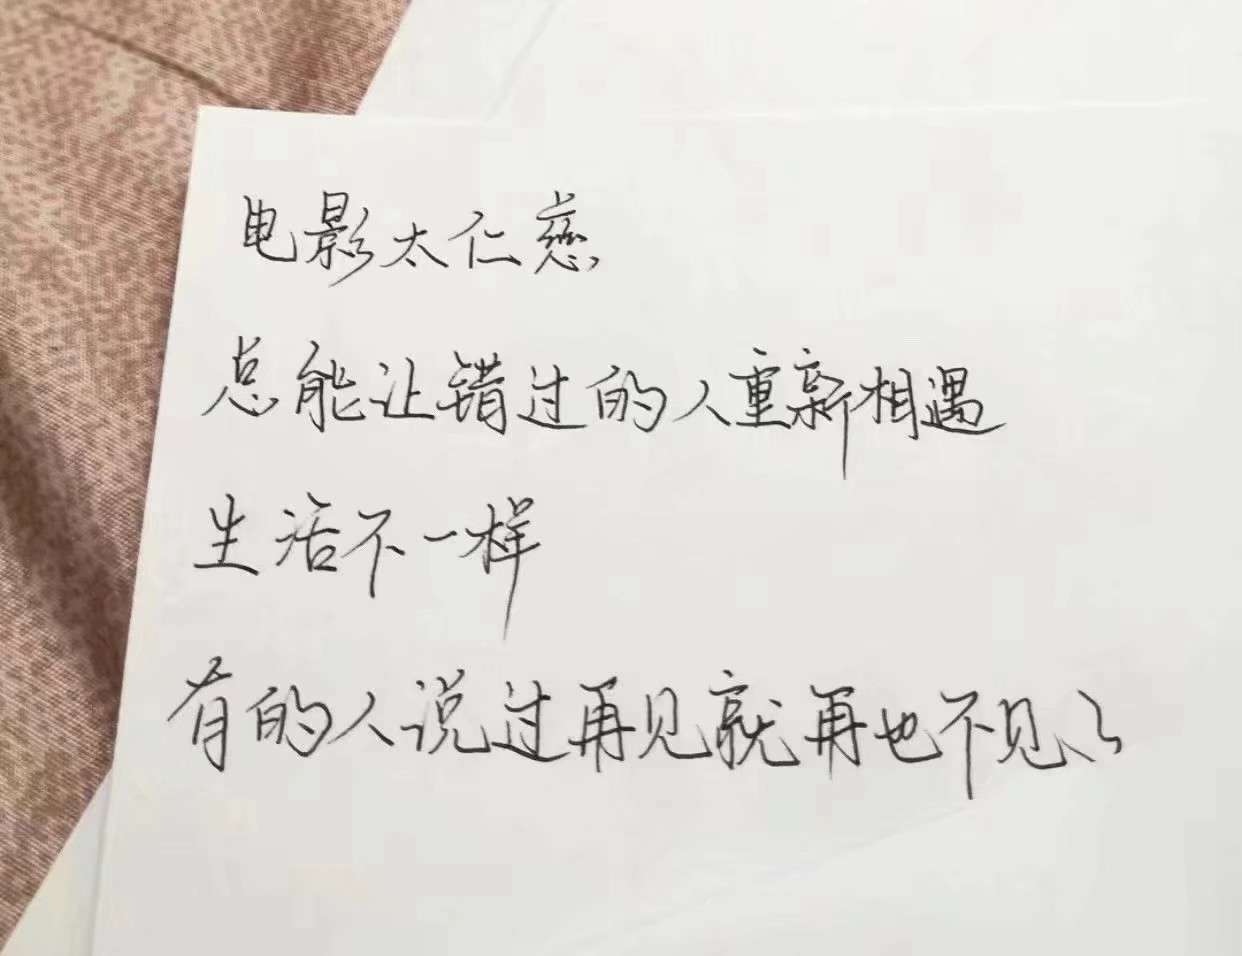 电影太仁慈
总能让错过的人重新相遇
生活不一样
有的人说过再见就再也不见